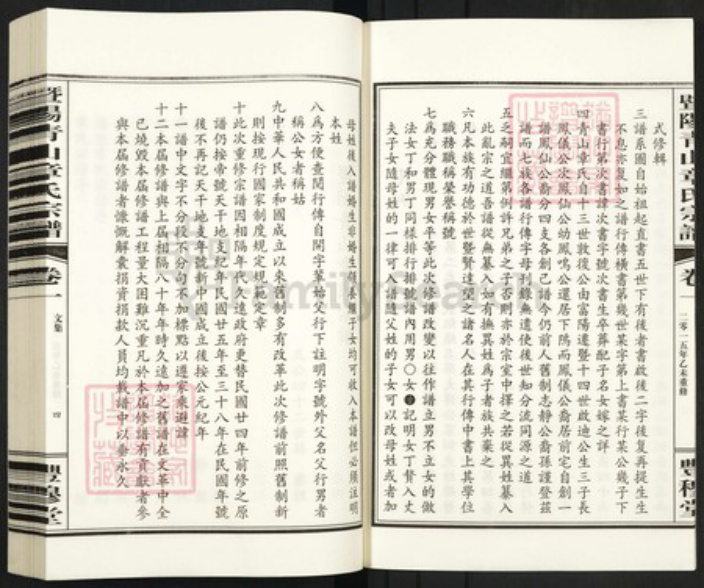 暨陽青山章氏宗譜
卷一
二零一五年乙未重修
豐穆堂
式修輯
三譜系圖自始祖起直書五世下有後者書啟後二字後复再提生生
不息亦复如之譜行傳橫書第幾世某字第上書某行某公幾子下
書行第次書諱次書字號次書生卒葬配子名女嫁之詳
四青山章氏自十三世敦後公由富陽遷暨十四世啟迪公生三子長
鳳儀公次鳳仙公幼鳳鳴公還居下隖而鳳儀公裔居前宅自創一
譜鳳仙公裔分四支各創己譜今仍前人舊制志靜公裔孫謹登茲
譜而七族各譜行傳字母刊錄無遺使後世知分流同源之道
五之嗣宜繼第例許兄弟之子否則亦於宗室中擇之若從異姓纂入
此亂宗之道吾譜從無纂入如有撫異姓爲子者族共棄之
六凡本族有功德於世暨賢達望之諸名人在其行傳中書上其學位
職務職稱榮譽稱號
七爲充分體現男女平等此次修譜改變以往作譜立男不立女的做
法女丁和男丁同樣排行排號譜內用男〇女●記明女丁贅入丈
夫子女隨母姓的一律可入譜隨父姓的子女可以改母姓或者加
母姓後入譜婚生非婚生領養繼子女均可收入本譜但必須註明
本姓
八爲方便查閱行傳自開字輩始父行下註明字號外父名父行男者
稱公女者稱姑
九中華人民共和國成立以來舊制多有改革此次修譜前照舊制新
則按現行國家制度規定規範定章
十此次重修宗譜因相隔年代久遠政府更替民國廿四年前修之原
譜仍按帝號天干地支紀年民國廿五年至三十八年在民國年號
後不再記天干地支年號新中國成立後按公元紀年
十一譜中文字不分段不分句不加標點以遵家乘避諱
十二本屆修譜與上屆相隔八十年年時久遠加之舊譜在文革中全
已燒毀本屆修譜工程量大困難沉重凡於本屆修譜有貢獻者參
與本屆修譜者慷慨解囊捐資捐款人員均載譜中以垂永久
暨陽青山章氏宗譜
卷一
文集
四
豐穆堂
FamilySearch